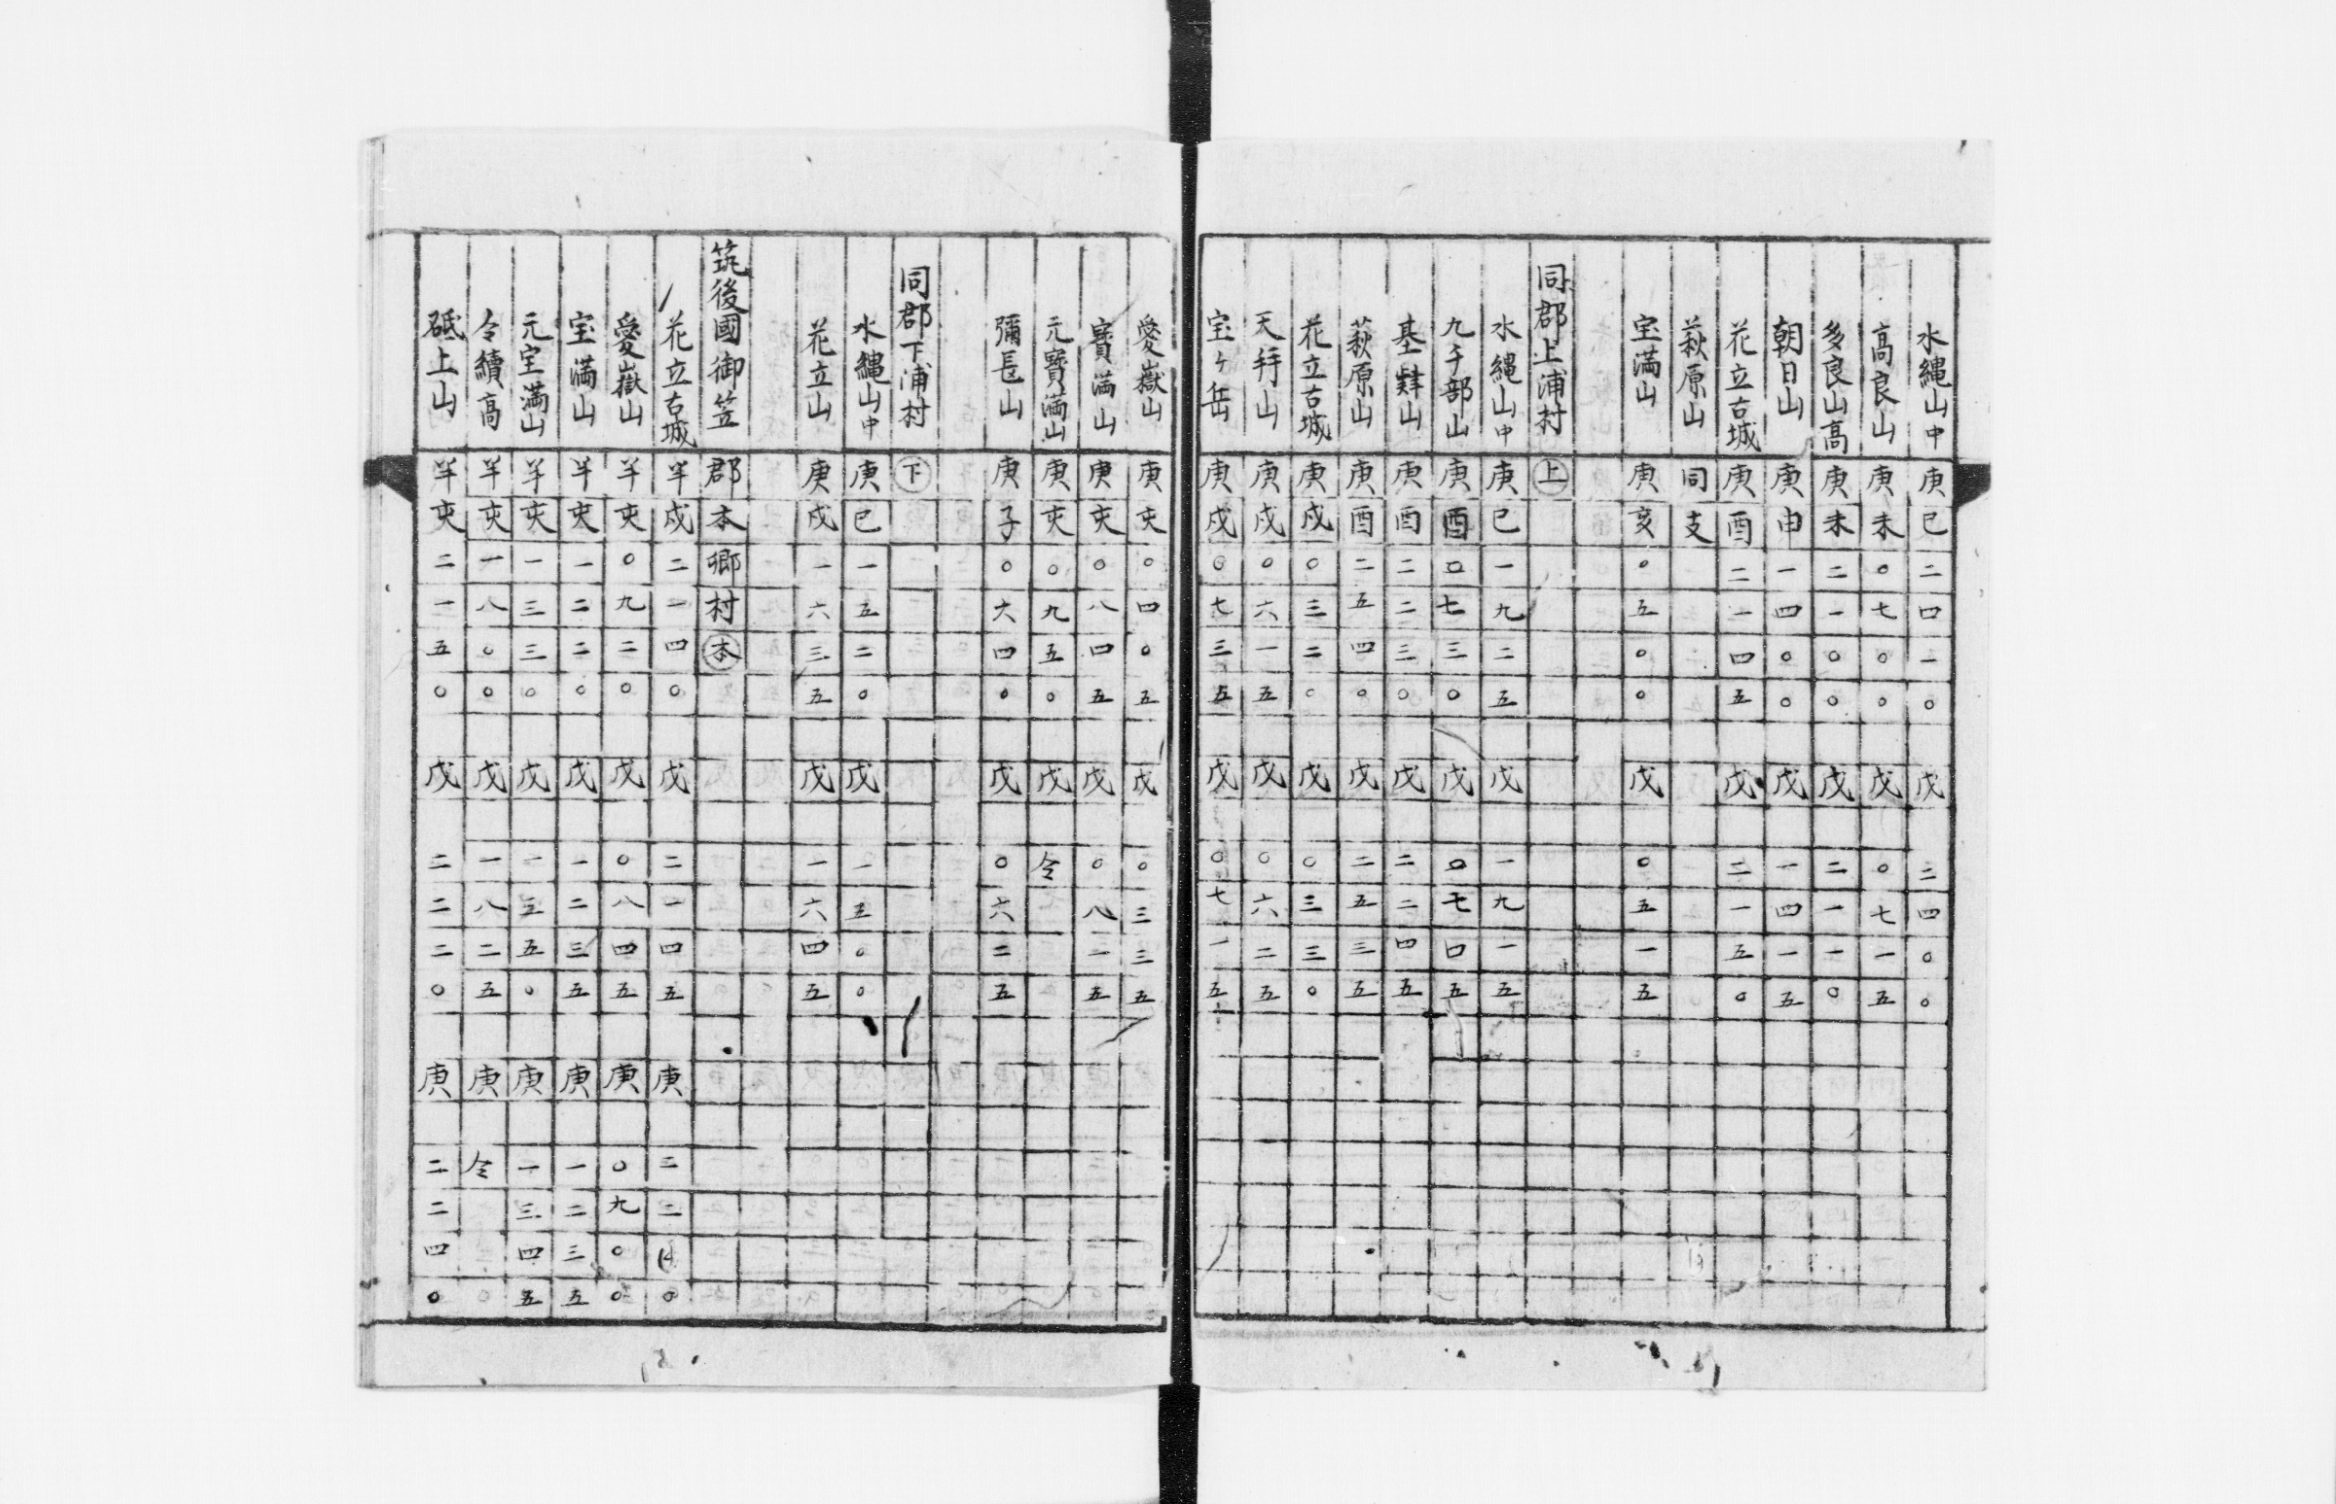 水縄山中 庚巳二四一〇 戊 二四〇〇
高良山 庚未〇七〇〇 戊 〇七一五
多良山高 庚未二一〇〇 戊 二一一〇
朝日山 庚申一四〇〇 戊 一四一五
花立古城 庚酉二一四五 戊 二一五〇
萩原山 同支
宝満山 庚亥〇五〇〇 戊 〇五一五
同郡上浦村 上
水縄山中 庚巳一九二五 戊 一九一五
九千部山 庚酉〇七三〇 戊 〇七四五
基肄山 庚酉二二三〇 戊 二二四五
萩原山 庚酉二五四〇 戊 二五三五
花立古城 庚戌〇三二〇 戊 〇三三〇
天拝山 庚戌〇六一五 戊 〇六二五
宝ヶ岳 庚戌〇七三五 戊 〇七一五
愛嶽山 庚亥〇四〇五 戊 〇三三五
寶満山 庚亥〇八四五 戊 〇八一五
元寶満山 庚亥〇九五〇 戊 令
彌長山 庚子〇六四〇 戊 〇六二五
同郡下浦村 下
水縄山中 庚巳一五二〇 戊 一五〇〇
花立山 庚戌一六三五 戊 一六四五
筑後國御笠郡本郷村 本
花立古城 半戌二一四〇 戊 二一四五 庚
愛嶽山 半亥〇九二〇 戊 〇八四五 庚 〇九〇〇
宝満山 半亥一二二〇 戊 一二三五 庚 一二三五
元宝満山 半亥一三三〇 戊 五〇 庚 一三四五
令續高 半亥一八〇〇 戊 一八二五 庚 令
砥上山 半亥二一五〇 戊 二二二〇 庚 二二四〇